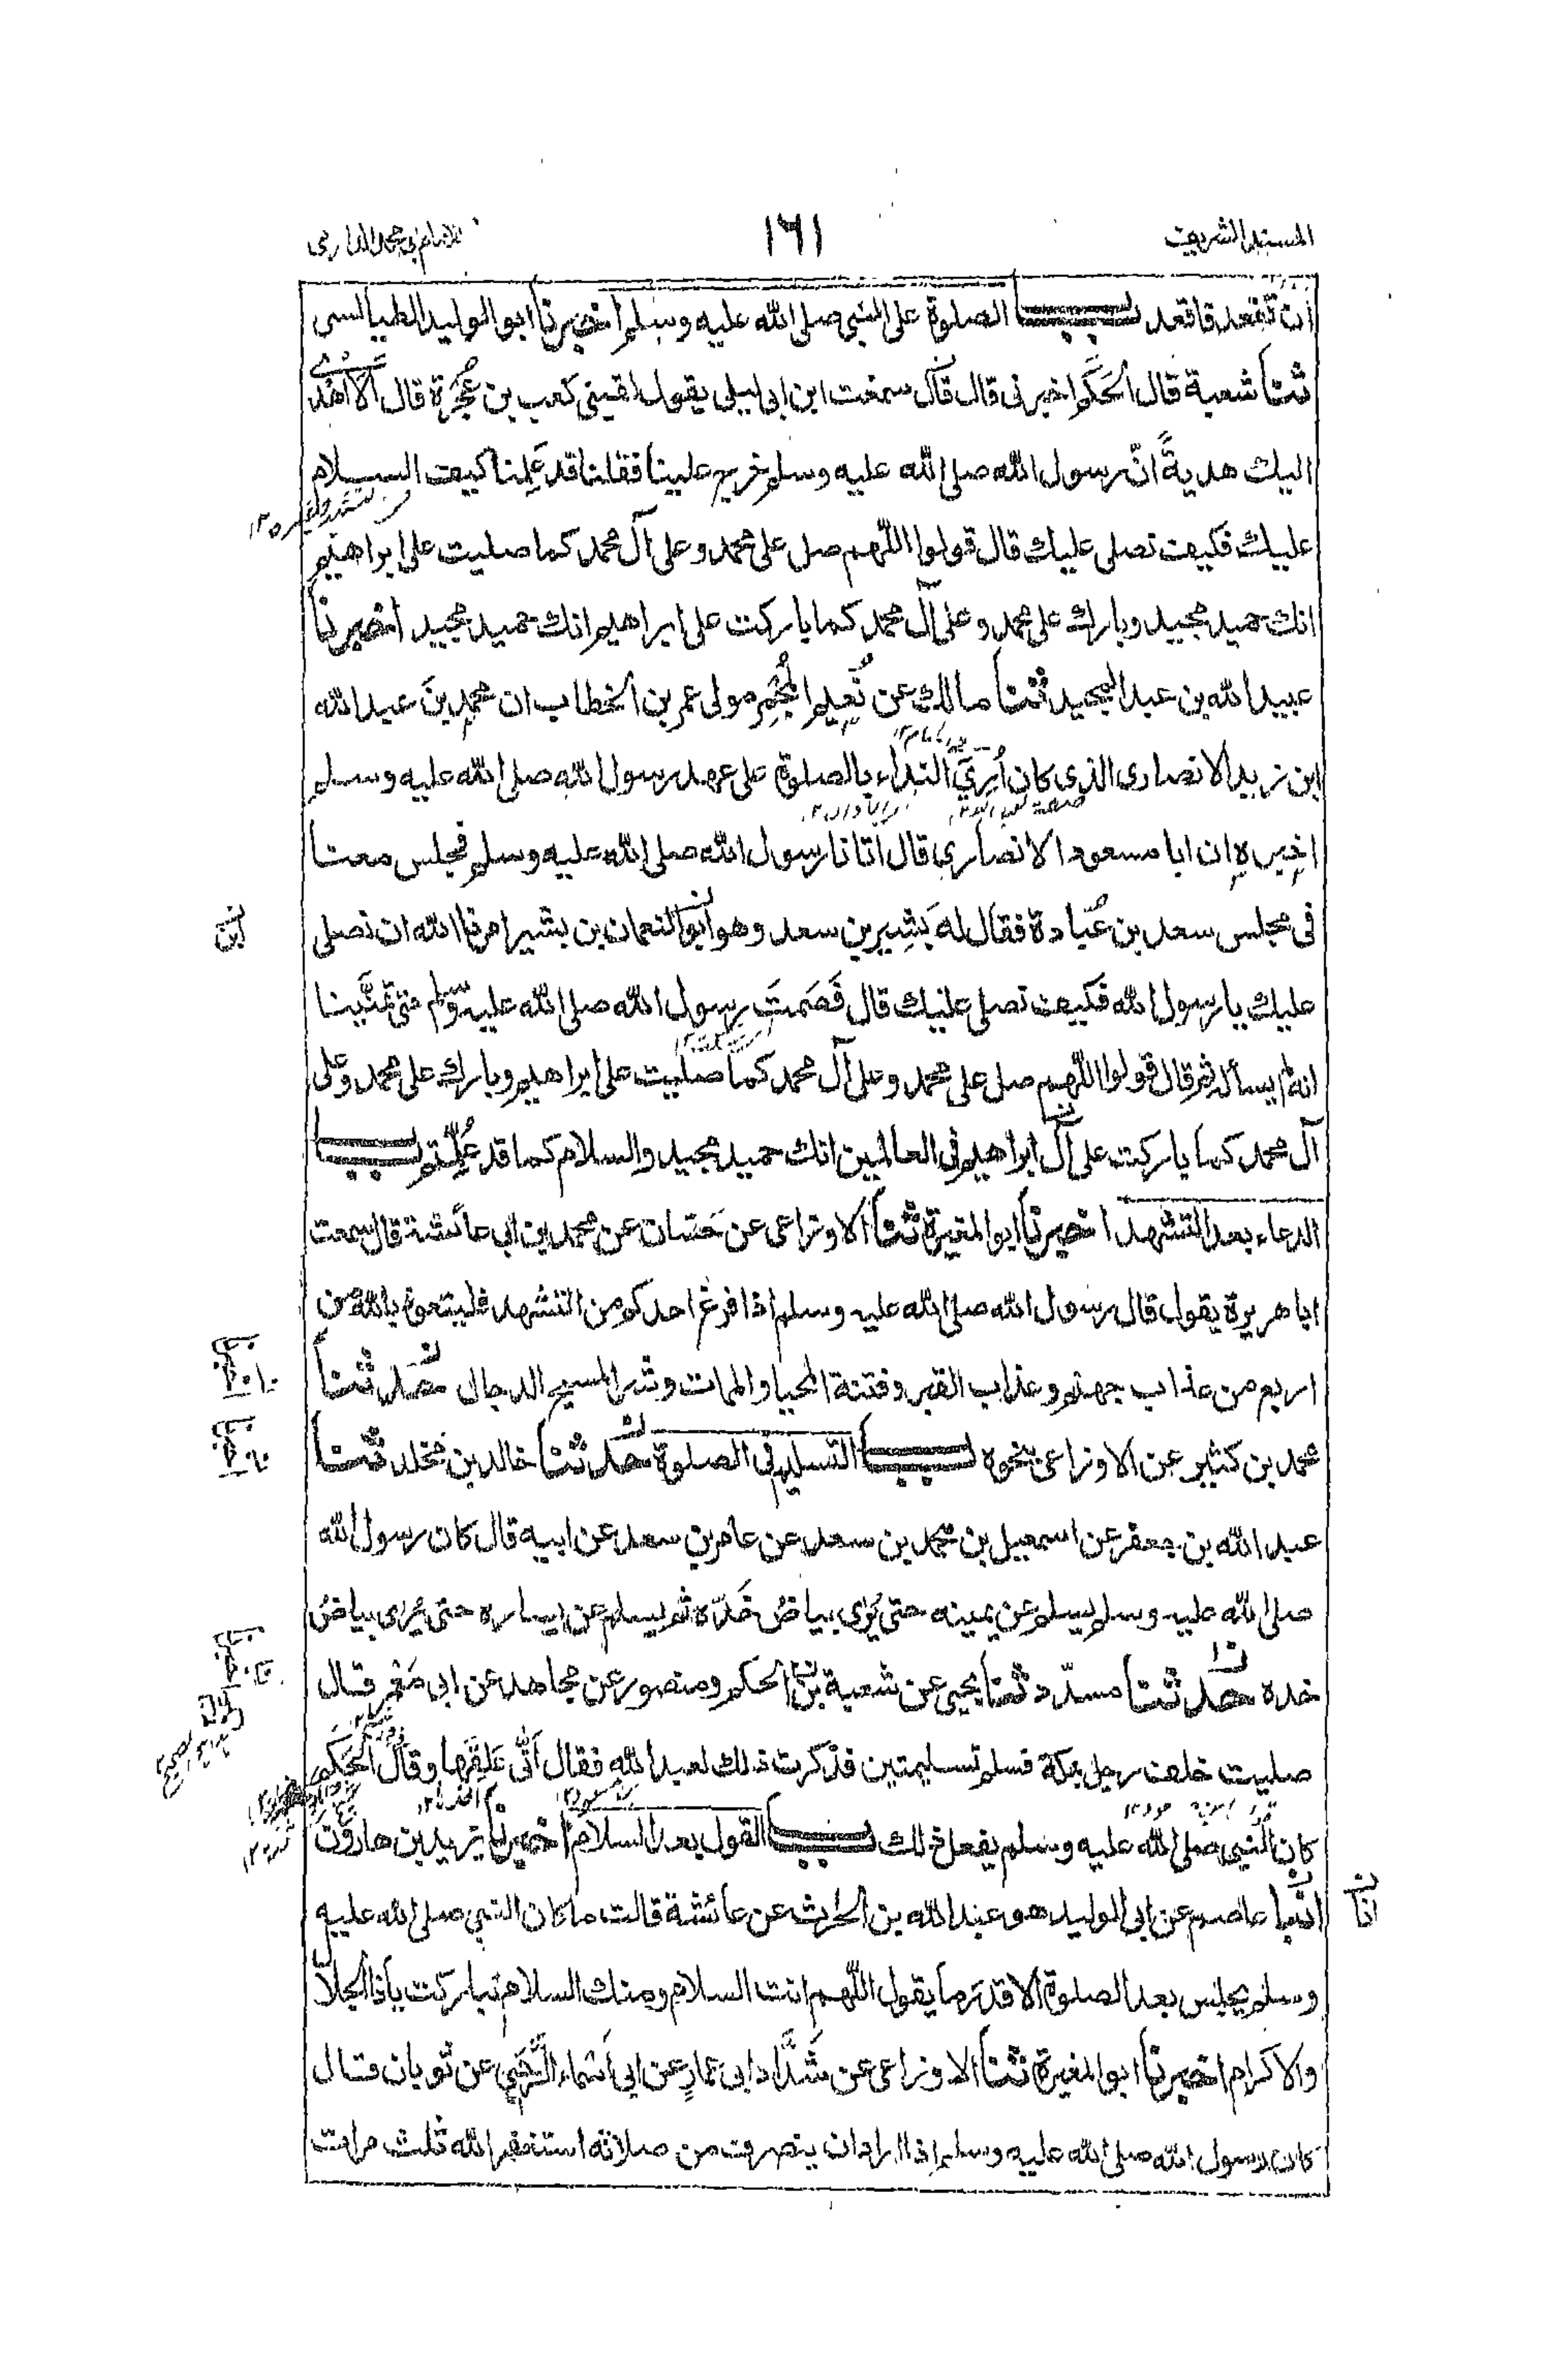 المسند الشريف
١٦١
للامام ابى محمد الدارمى
ان تقعد فاقعد باب الصلوة على النبى صلى الله عليه وسلم اخبرنا ابو الوليد الطيالسى
ثنا شعبة قال الحَكَم اخبرنى قال سمعت ابن ابى ليلى يقول لقينى كعب بن عُجْرَة قال اَلَا اُهْدِى
اليك هديةً انّ رسول الله صلى الله عليه وسلم خرج علينا فقلنا قد عَلِمنا كيف السلام
عليك فكيف نصلى عليك قال قولوا اللّٰهم صل على محمد وعلى آل محمد كما صليت على ابراهيم
انك حميد مجيد وبارك على محمد وعلى آل محمد كما باركت على ابراهيم انك حميد مجيد اخبرنا
عبيد الله بن عبد المجيد ثنا مالك عن نُعَيم المُجْمِر مولى عمر بن الخطاب ان محمد بنَ عبد الله
ابن زيد الانصارى الذى كان اُرِىَ النداء بالصلوة على عهد رسول الله صلى الله عليه وسلم
اخبره ان ابا مسعود الانصارى قال اتانا رسول الله صلى الله عليه وسلم فجلس معنا
فى مجلس سعد بن عُبادة فقال له بَشِير بن سعد وهو ابو النعمان بن بشير امرنا الله ان نصلى
ابن
عليك يا رسول الله فكيف نصلى عليك قال فَصَمَتَ رسول الله صلى الله عليه وسلم حتى تمنَّينا
انه لم يسأله ثم قال قولوا اللّٰهم صل على محمد وعلى آل محمد كما صليت على ابراهيم وبارك على محمد وعلى
آل محمد كما باركت على آل ابراهيم فى العالمين انك حميد مجيد والسلام كما قد عُلِّمتم باب
الدعاء بعد التشهد اخبرنا ابو المغيرة ثنا الاوزاعى عن حَسّان عن محمد بن ابى عائشة قال سمعت
ابا هريرة يقول قال رسول الله صلى الله عليه وسلم اذا فرغ احدكم من التشهد فليتعوذ بالله من
اربع من عذاب جهنم وعذاب القبر وفتنة المحيا والممات وشر المسيح الدجال حدثنا
محمد بن كثير عن الاوزاعى بنحوه باب التسليم فى الصلوة حدثنا خالد بن مخلد ثنا
عبد الله بن جعفر عن اسمعيل بن محمد بن سعد عن عامر بن سعد عن ابيه قال كان رسول الله
صلى الله عليه وسلم يسلم عن يمينه حتى يُرٰى بياضُ خَدّه ثم يسلم عن يساره حتى يُرٰى بياضُ
خده حدثنا مسدّد ثنا يحيى عن شعبة بن الحكم ومنصور عن مجاهد عن ابى مَعْمر قال
صليت خلف رجل بمكة فسلم تسليمتين فذكرت ذلك لعبد الله فقال اَنّٰى عَلِقَها وقال الحَكَم
كان النبى صلى الله عليه وسلم يفعل ذلك باب القول بعد السلام اخبرنا يزيد بن هارون
انبا عاصم عن ابى الوليد هو عبد الله بن الحارث عن عائشة قالت ما كان النبى صلى الله عليه
انا
وسلم يجلس بعد الصلوة الا قدر ما يقول اللّٰهم انت السلام ومنك السلام تباركت يا ذا الجلال
والاكرام اخبرنا ابو المغيرة ثنا الاوزاعى عن شَدَّاد ابى عمارٍ عن ابى اَسْماء الرَّحَبِى عن ثوبان قال
كان رسول الله صلى الله عليه وسلم اذا اراد ان ينصرف من صلاته استغفر الله ثلث مرات